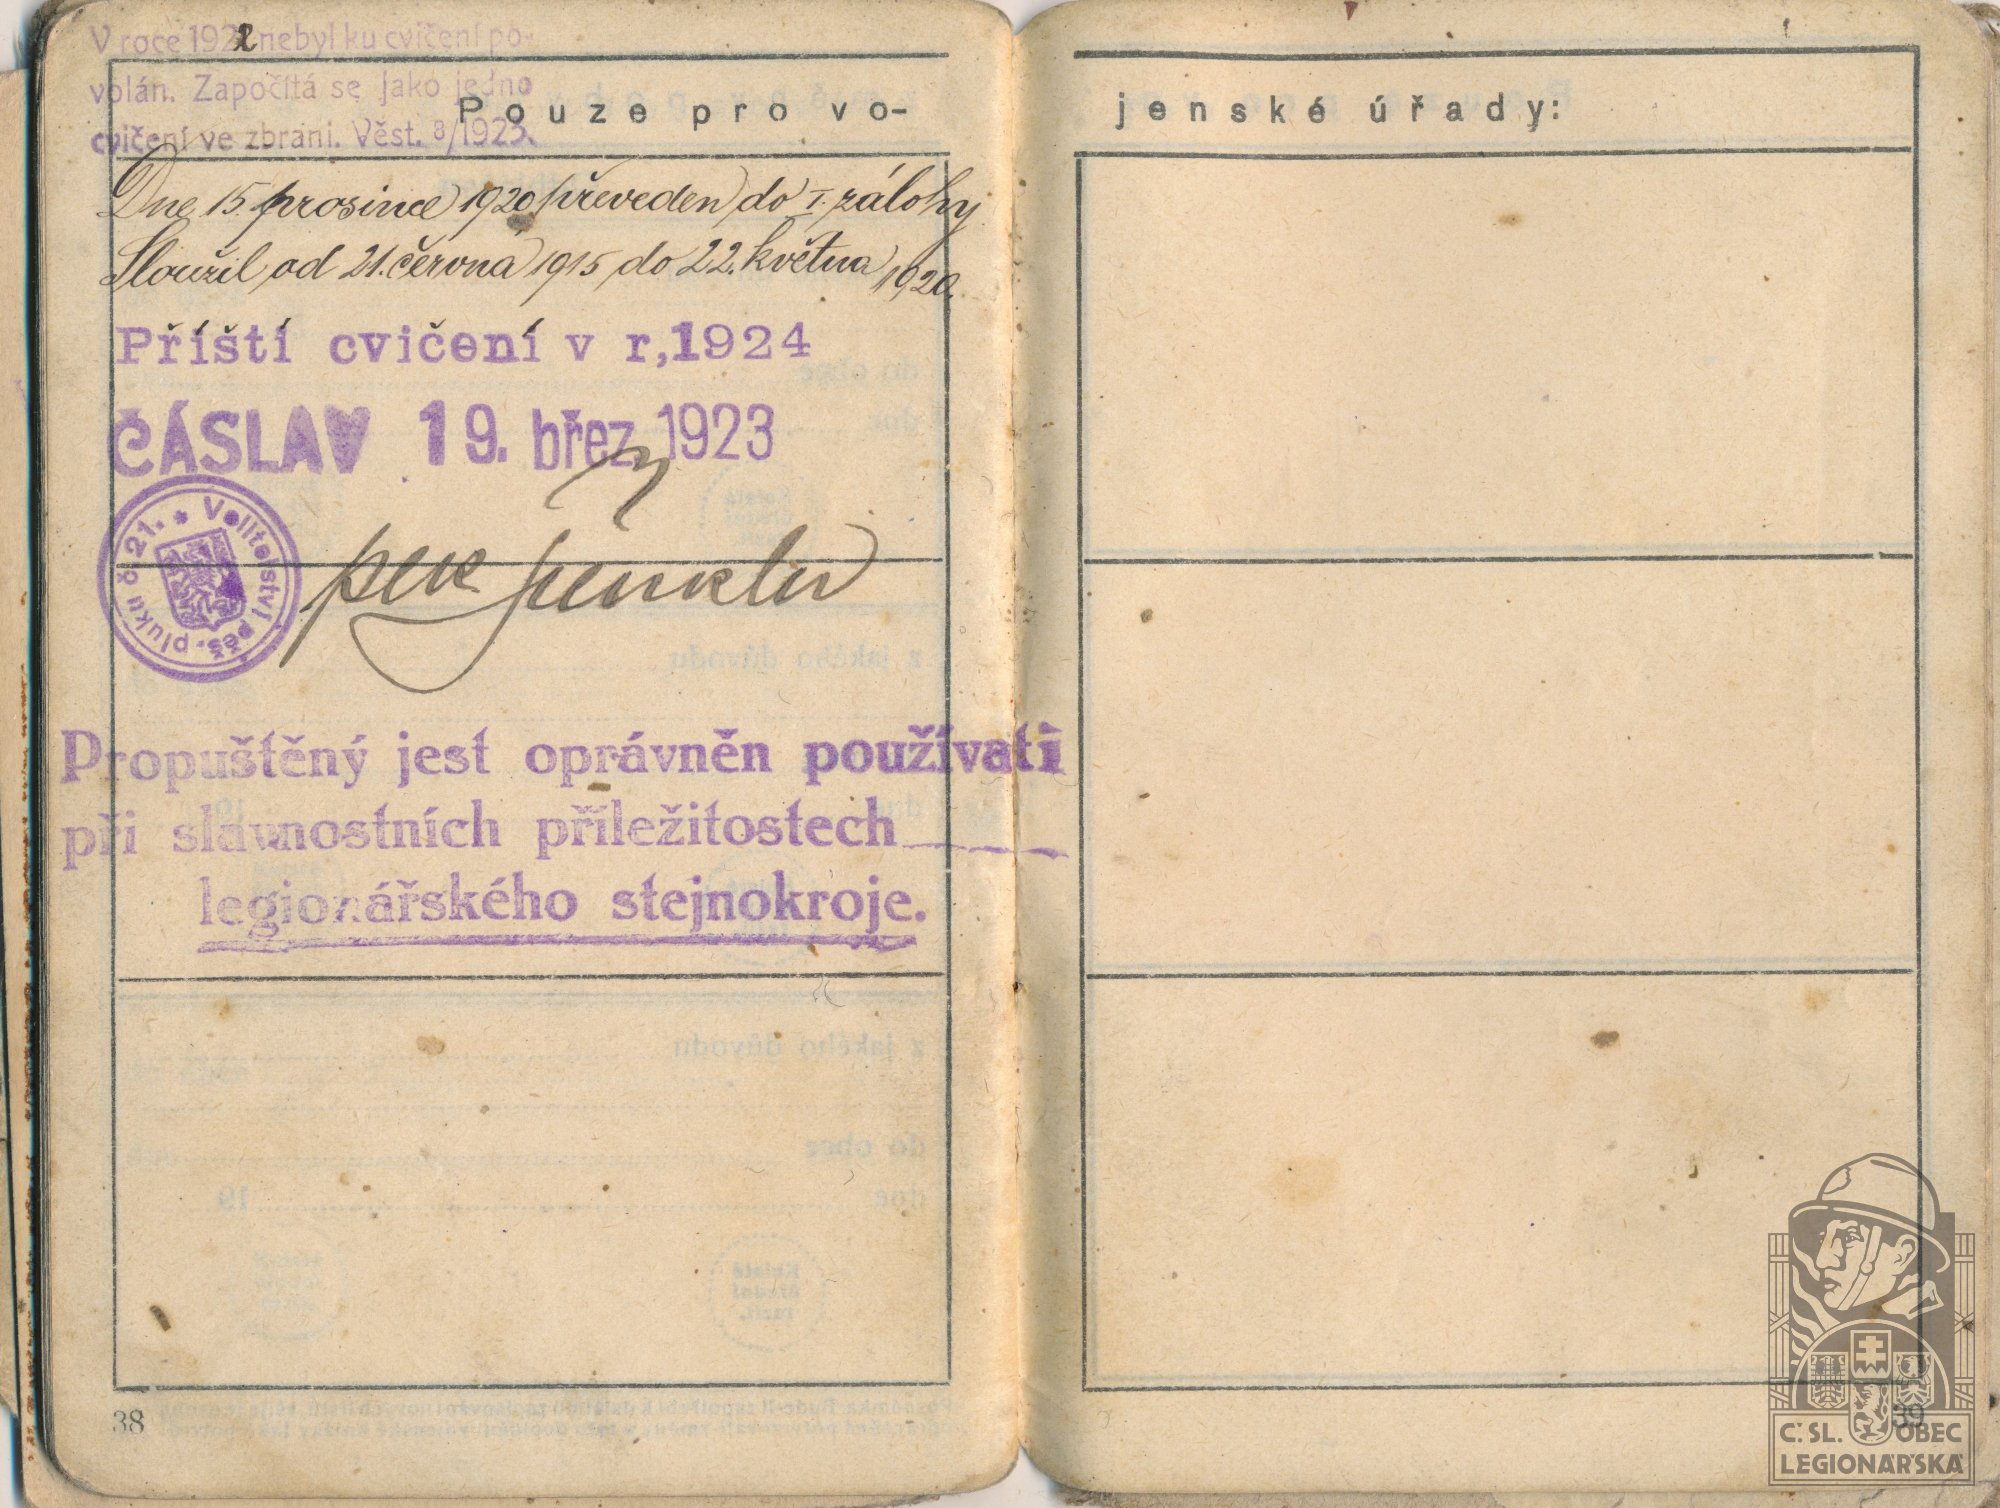 V roce 1922 nebyl ku cvičení po-
volán. Započítá se jako jedno
cvičení ve zbrani. Věst. 8/1923.
Pouze pro vo-
Dne 15. prosince 1920 převeden do I. zálohy
Sloužil od 21. června 1915 do 22. května 1920.
Příští cvičení v r,1924
ČÁSLAV 19. břez. 1923
Velitelství pěš. pluku č 21. *
Propuštěný jest oprávněn používati
při slavnostních příležitostech
legionářského stejnokroje.
38
jenské úřady:
39
Č. SL. OBEC
LEGIONÁŘSKÁ